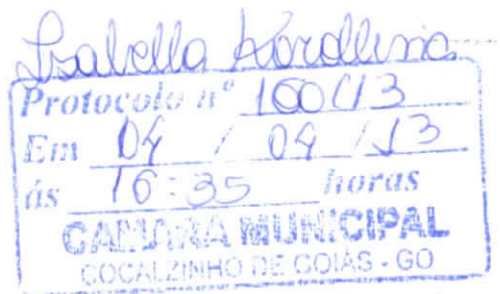 Isabella Karollina
Protocolo nº 160/13
Em 04 / 04 / 13
ás 16:35 horas
CAMARA MUNICIPAL
COCALZINHO DE GOIÁS - GO